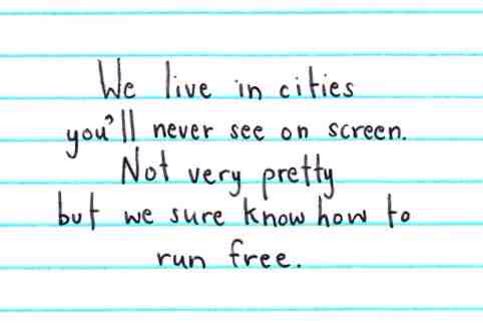 We live in cities
you'll never see on screen.
Not very pretty
but we sure know how to
run free.